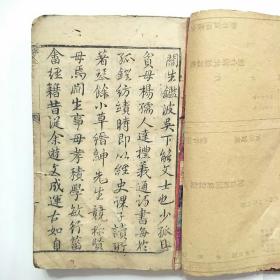 閻生鑑波吳下能文士也少孤且
貧母楊孺人達禮義通詩書每於
孤鐙紡績時即以經史課子讀所
著琴餘小草縉紳先生競稱賢
母焉閻生事母孝積學敏行菑
畬經籍昔從余遊文成運古如自